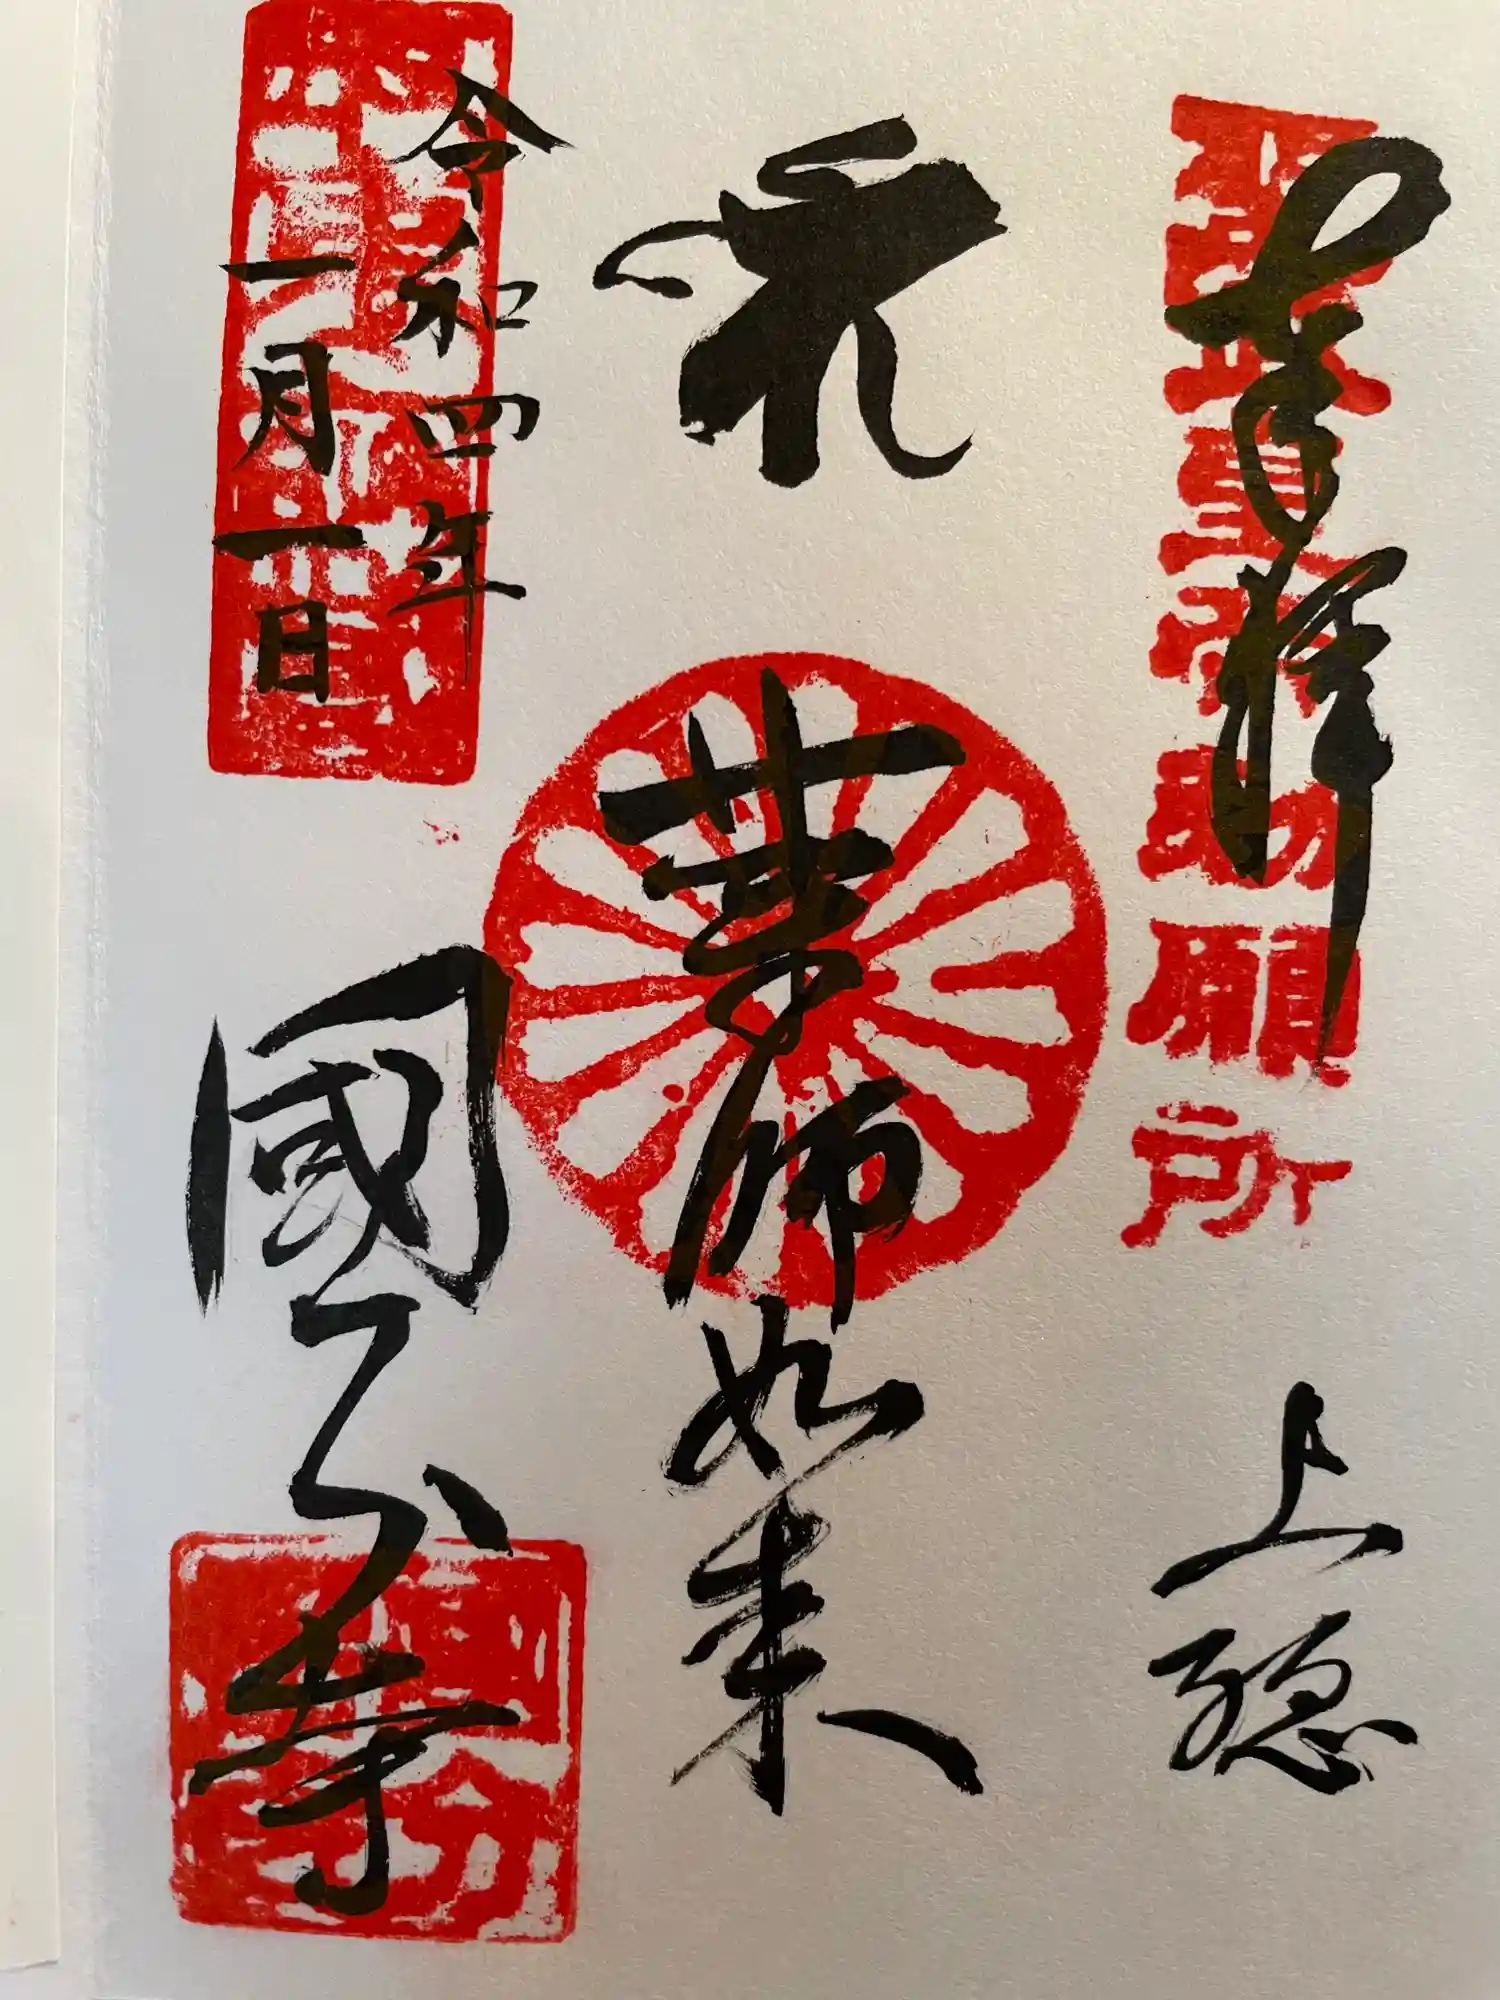 奉拝
聖武皇帝勅願所
上総
薬師如来
令和四年
一月一日
國分寺